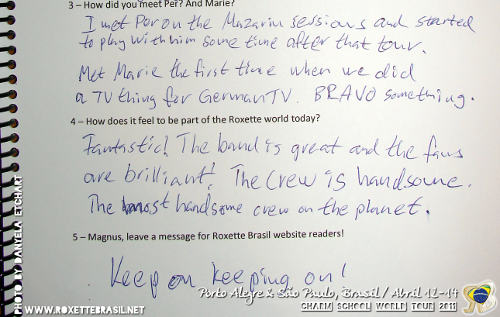 3 – How did you meet Per? And Marie?
I met Per on the Mazarin sessions and started
to play with him some time after that tour.
Met Marie the first time when we did
a TV thing for German TV. BRAVO something.
4 – How does it feel to be part of the Roxette world today?
Fantastic! The band is great and the fans
are brilliant! The crew is handsome.
The most handsome crew on the planet.
5 – Magnus, leave a message for Roxette Brasil website readers!
Keep on keeping on!
Porto Alegre & São Paulo, Brasil / Abril 12-14
CHARM SCHOOL WORLD TOUR 2011
WWW.ROXETTEBRASIL.NET
PHOTO BY DANYELA ETCHART